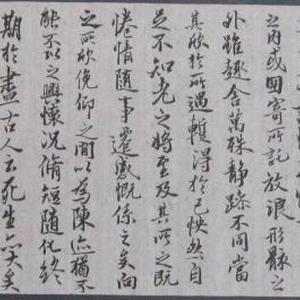 之內或因寄所託放浪形骸之
外雖趣舍萬殊静躁不同當
其欣於所遇暫得於己怏然自
足不知老之將至及其所之既
惓情隨事遷感慨係之矣向
之所欣俛仰之間以為陳迹猶不
能不以之興懷況脩短隨化終
期於盡古人云死生亦大矣